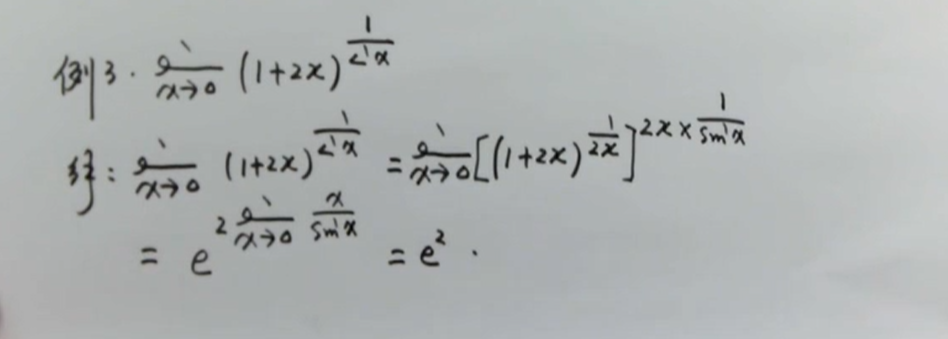 例3. lim x→0 (1+2x)^(1/sin x)
解: lim x→0 (1+2x)^(1/sin x) = lim x→0 [(1+2x)^(1/2x)]^(2x × 1/sin x)
= e^(2 lim x→0 x/sin x) = e^2.